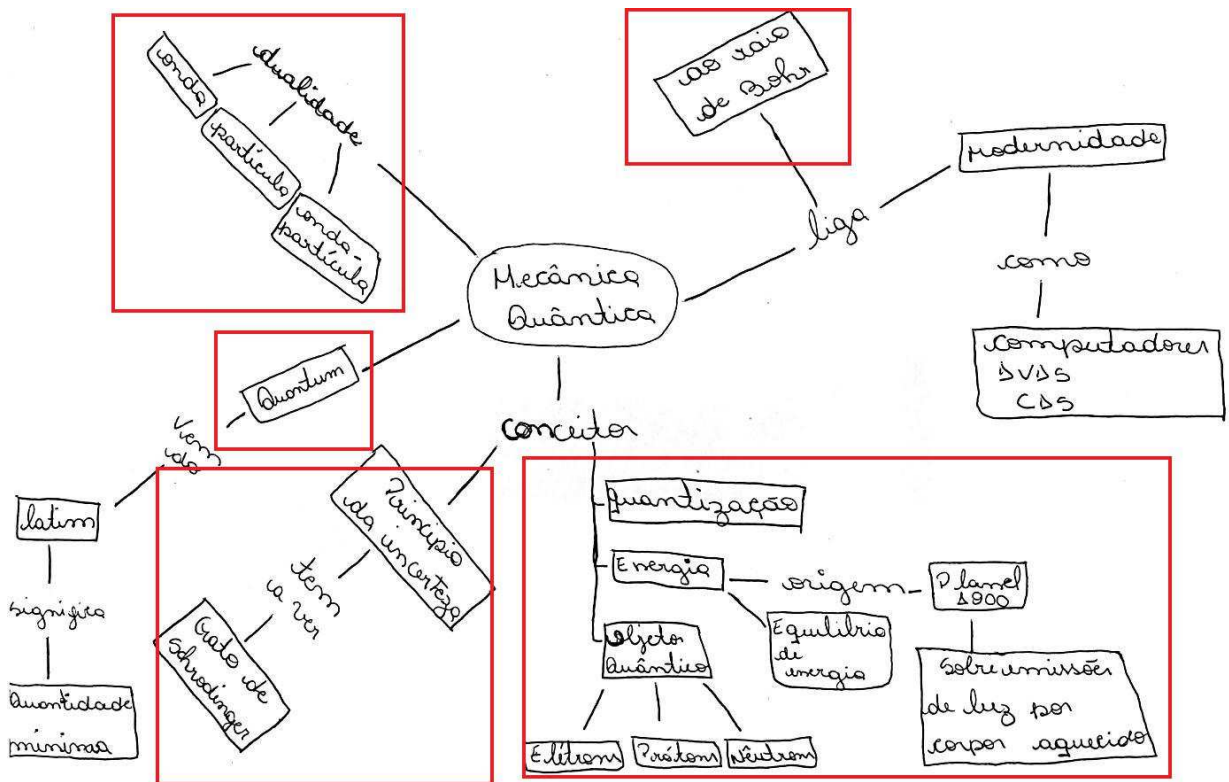 dualidade
onda
partícula
onda-
partícula
ao raio
de Bohr
Modernidade
liga
como
computadores
DVDS
CDS
Mecânica
Quântica
Quantum
Vem
do
latim
significa
Quantidade
minima
conceitos
Principio
da incerteza
tem
a ver
Gato de
Schrodinger
Quantização
Energia
origem
1900
Equilibrio
de
energia
Sobre emissões
de luz por
corpos aquecido
Objetos
Quântico
Elétrons
Prótons
Nêutrons